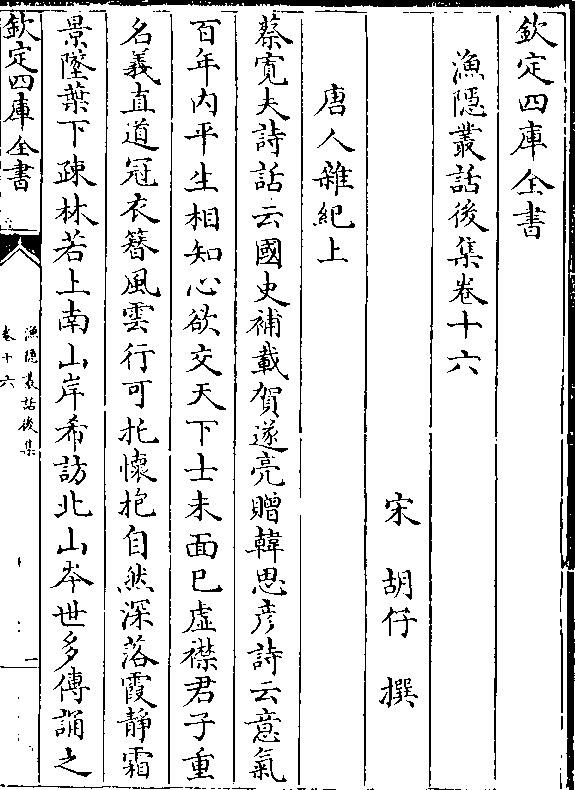 欽定四庫全書
漁隱叢話後集卷十六
宋 胡仔 撰
唐人雜紀上
蔡寛夫詩話云國史補載賀遂亮贈韓思彦詩云意氣
百年内平生相知心欲交天下士未面已虚襟君子重
名義直道冠衣簪風雲行可托懷抱自然深落霞靜霜
景墜葉下疎林若上南山岸希訪北山岑世多傳誦之
欽定四庫全書
漁隱叢話後集
卷十六
一